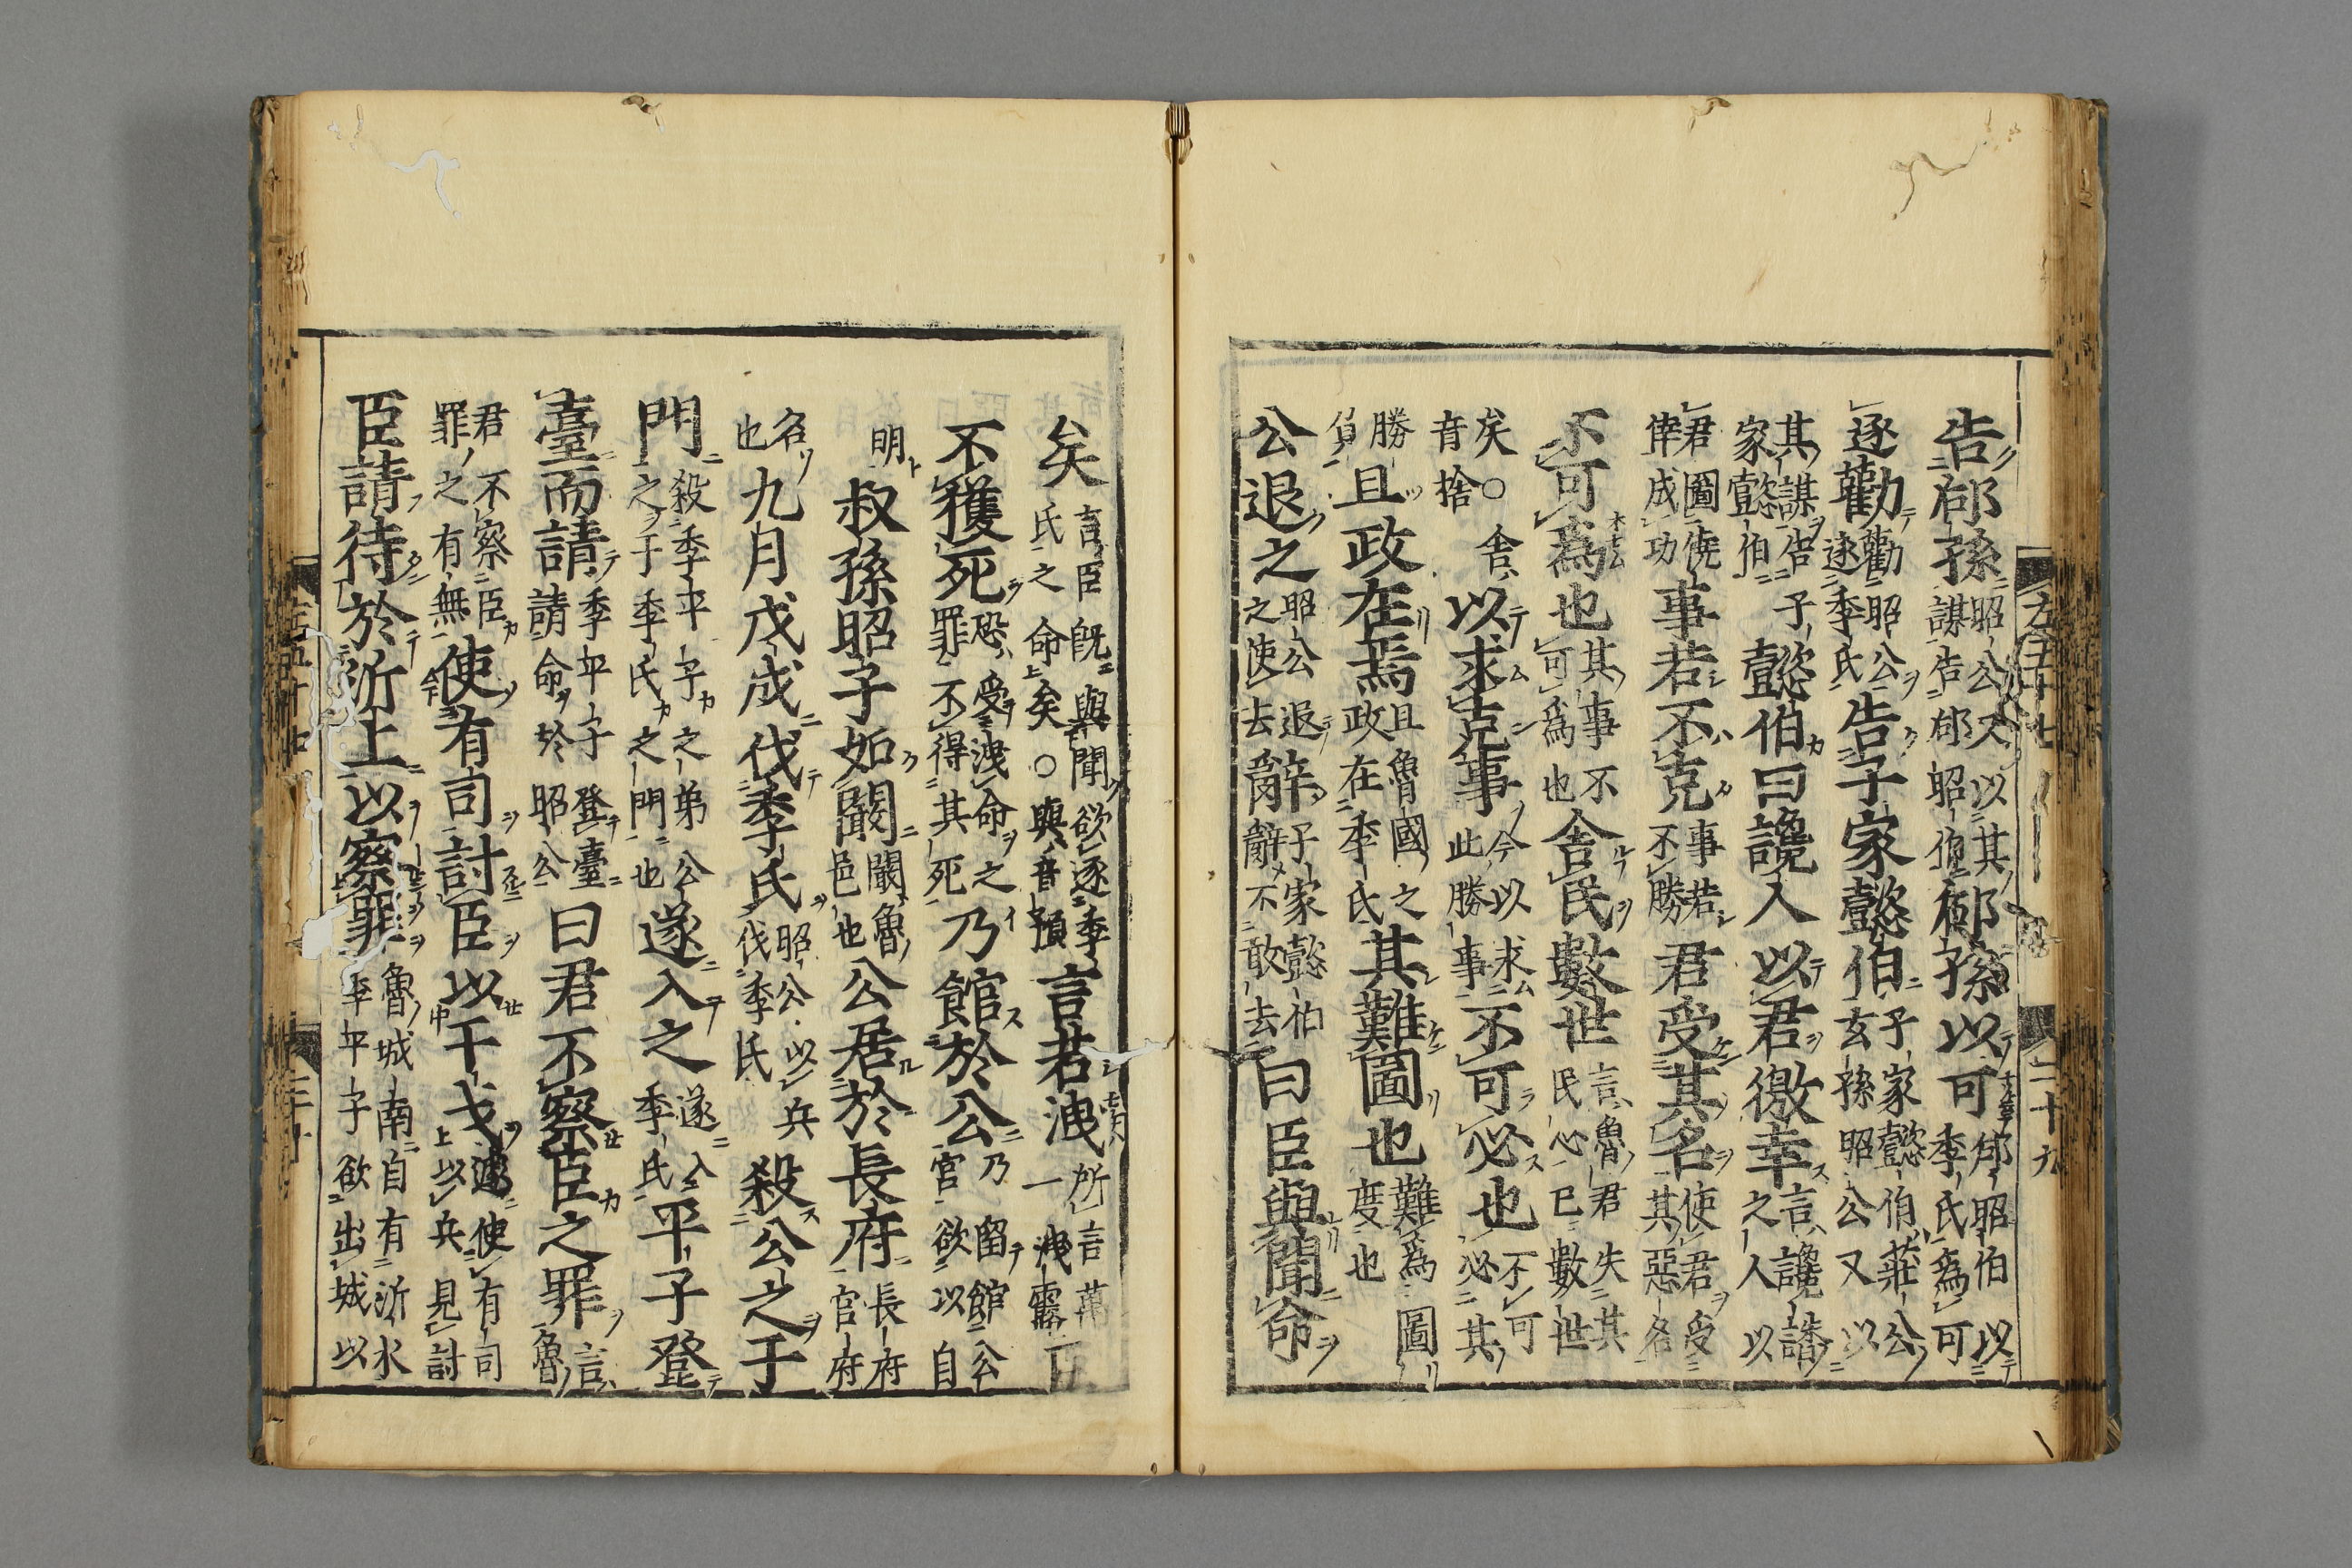 左五十七　二十九
告郈孫昭公又以其謀告郈昭伯郈孫以可郈昭伯以季氏為可
逐勸勸昭公逐季氏告子家懿伯子家懿伯莊公玄孫昭公又以
其謀告子家懿伯懿伯曰讒人以君徼幸言讒譖之人以
君圖僥倖成功事若不克事若不勝君受其名使君受其惡名
不可爲也其事不可爲也舎民數世言魯君失其民心已數世
矣○舎音捨以求克事今以求此勝事不可必也不可必其
勝負且政在焉且魯國之政在季氏其難圖也難爲圖度也
公退之昭公退之使去辭子家懿伯辭不敢去曰臣與聞命
矣言臣既與聞欲逐季氏之命矣○與音預言若洩所言萬一洩露臣
不獲死恐受洩命之罪不得其死乃館於公乃留館公宮欲以自
明叔孫昭子如闞闞魯邑也公居於長府長府官府
名也九月戊戌伐季氏昭公以兵伐季氏殺公之于
門殺季平子之弟公之于季氏之門也遂入之遂入季氏平子登
臺而請季平子登臺請命於昭公曰君不察臣之罪言魯
君不察臣罪之有無使有司討臣以干戈遽使有司以兵見討
臣請待於沂上以察罪魯城南自有沂水季平子欲出城以